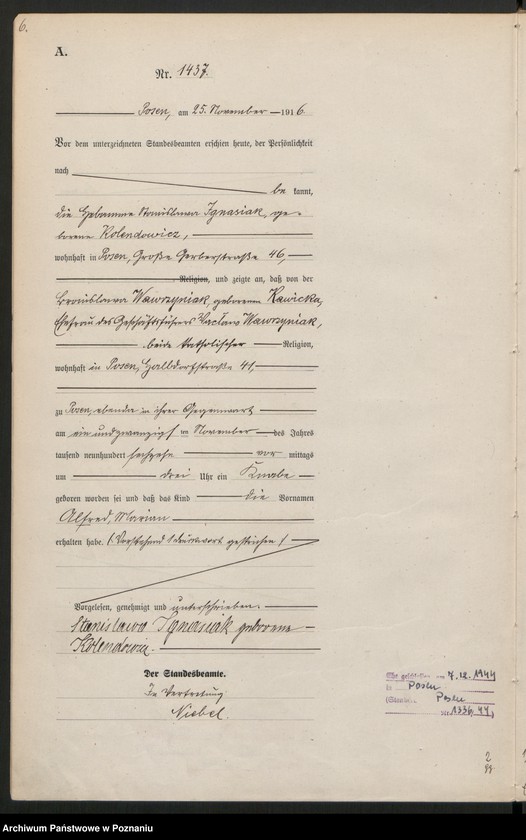 6.
A.
Nr. 1437.
Posen, am 25. November 1916.
Vor dem unterzeichneten Standesbeamten erschien heute, der Persönlichkeit
nach
be kannt,
die Hebamme Stanislawa Ignasiak, ge-
borene Kolendowicz,
wohnhaft in Posen, Große Gerberstraße 46,
Religion, und zeigte an, daß von der
Bronislawa Wawrzyniak, geborenen Kawicka,
Ehefrau des Geschäftsführers Vaclaw Wawrzyniak,
beide katholischer Religion,
wohnhaft in Posen, Halldorfstraße 41,
zu Posen, ebenda in ihrer Gegenwart
am ein und zwanzigs ten November des Jahres
tausend neunhundert sechzehn vor mittags
um drei Uhr ein Knabe
geboren worden sei und daß das Kind die Vornamen
Alfred, Marian
erhalten habe. (Vorstehend 1 Druckwort gestrichen)
Vorgelesen, genehmigt und unterschrieben.
Stanislawa Ignasiak geborene
Kolendowicz.
Der Standesbeamte.
In Vertretung
Niebel.
7.12.1944
in Posen
Posen
Nr. 1336/44)
2
Archiwum Państwowe w Poznaniu